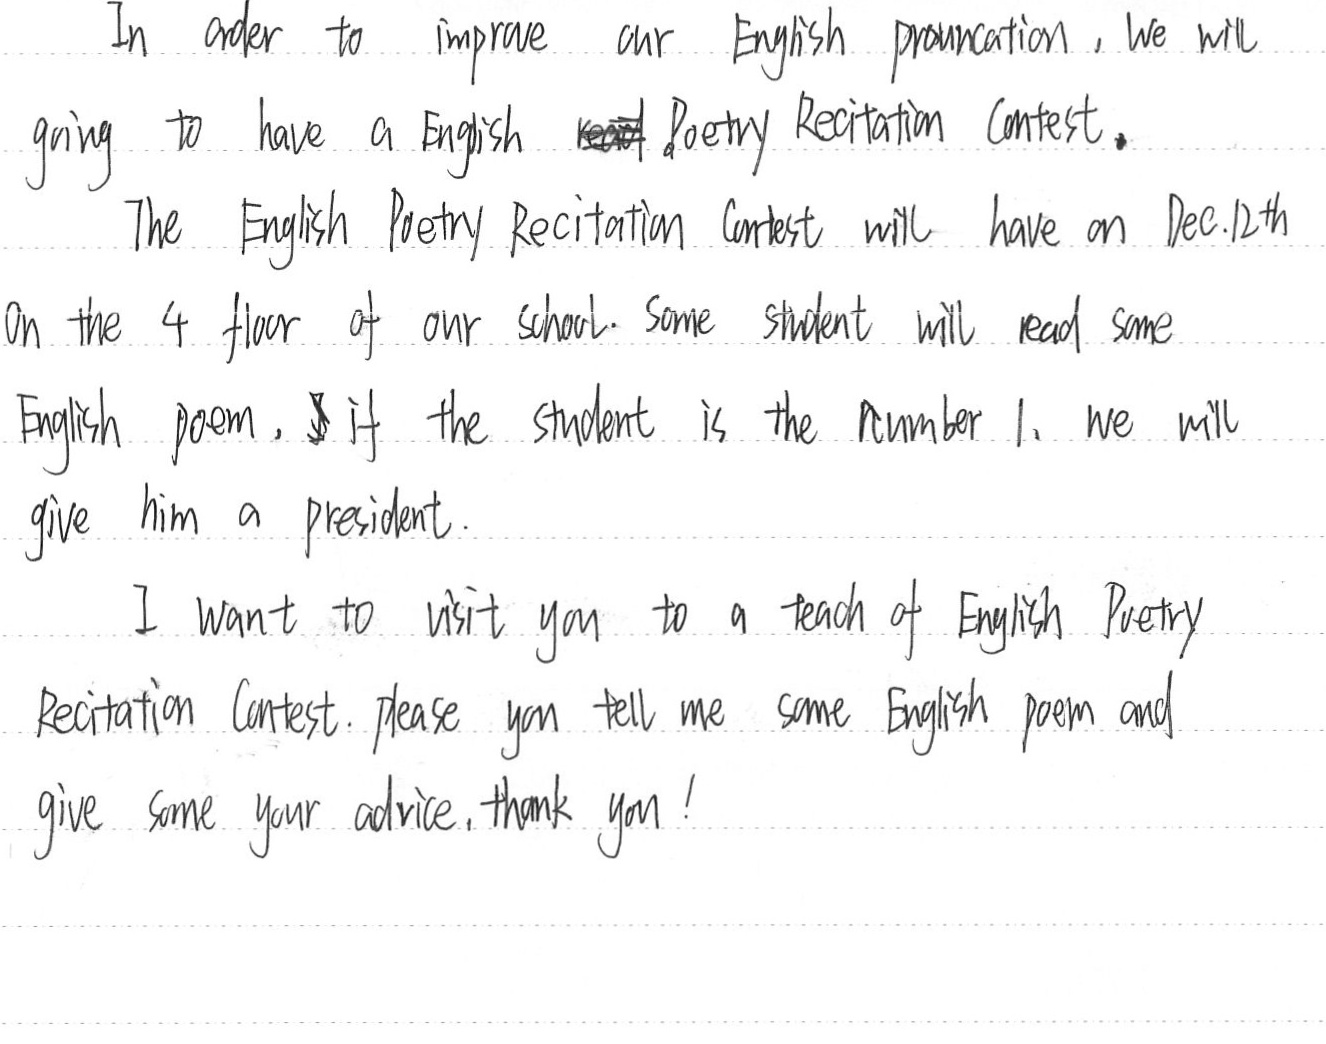 In order to improve our English prouncation, We will
going to have a English Poetry Recitation Contest.
The English Poetry Recitation Contest will have on Dec.12th
On the 4 floor of our school. Some student will read some
English poem, if the student is the number 1. We will
give him a president.
I want to visit you to a teach of English Poetry
Recitation Contest. please you tell me some English poem and
give some your advice, thank you!